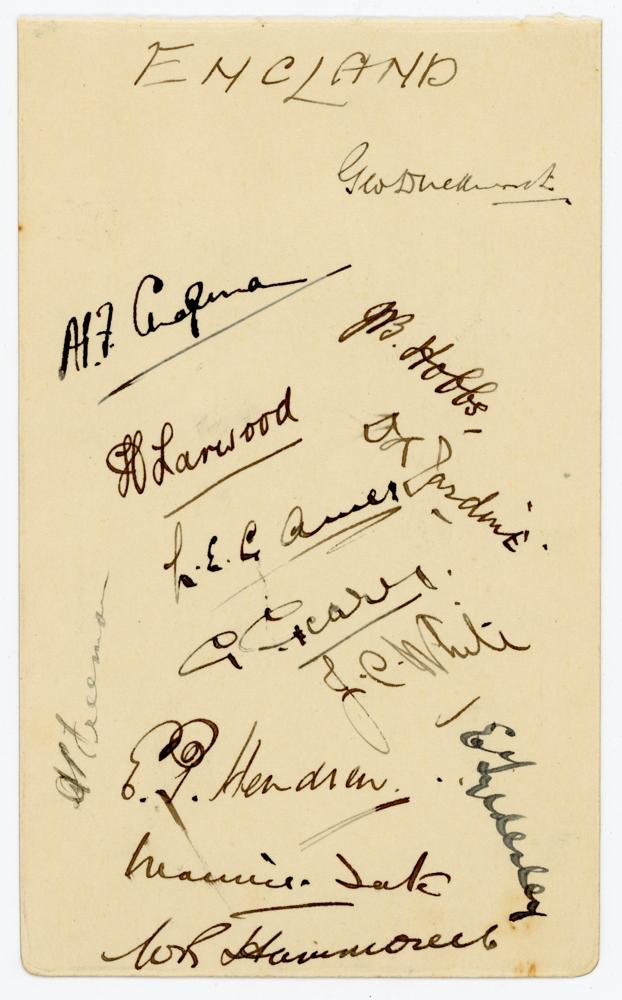 ENGLAND
Geo Duckworth
A.P.F. Chapman
JB. Hobbs
H Larwood
DR Jardine.
L.E.G. Ames
G Geary.
J.C. White
AP Freeman
E. Tyldesley
E.P. Hendren.
Maurice Tate
WR Hammond